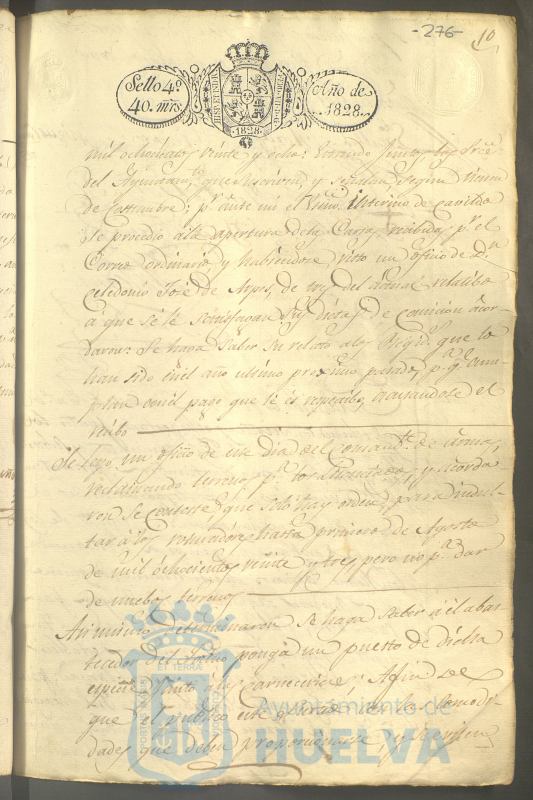 -276-
10
Sello 4º
40. mrs.
HISPAN. ET IND. R.
Año de
1828.
1828
mil ochocientos veinte y ocho: Estando juntos los Sres.
del Ayuntamto. que suscriven, y señalan segun tienen
de costumbre; pr. ante mi el Esno. interino de cavildo
se procedio á la apertura dela Carta recibida pr. el
Correo ordinario, y habiendose visto un oficio de Dn.
Celedonio José de de tres del actual relatibo
á que se le satisfagan sus dietas de comicion acor-
daron: Se haga saber su relato a los Regid.s que lo
han sido enel año ultimo proximo pasado, pa. qe. cum-
plan conel pago que le es respectibo, haciendole el
recibo
Se leyo un oficio de este dia del Comandte. de armas,
reclamando terreno pa. los y acorda
ron se conteste que solo hay orden para indul-
tar á los roturadores hasta primero de Agosto
de mil ochocientos veinte y tres pero no pa. dar
de nuebo terreno
Asi mismo determinaron se haga saber á el abas
tecedor del ponga un puesto de dicha
especie junto á las carnecerias Afin de
que el publico este con las comodi-
dades que deben proporcionarse, y
PORTUS MARIS ET TERRAE CUSTODIA
Ayuntamiento de
HUELVA